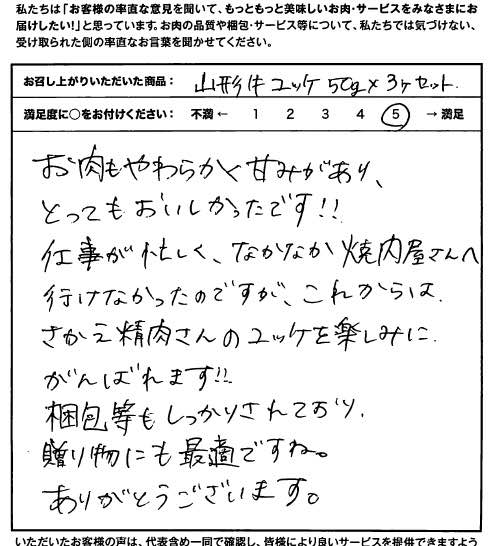 私たちは「お客様の率直な意見を聞いて、もっともっと美味しいお肉・サービスをみなさまにお
届けしたい！」と思っています。お肉の品質や梱包・サービス等について、私たちでは気づけない、
受け取られた側の率直なお言葉を聞かせてください。
お召し上がりいただいた商品： 山形牛ユッケ50g×3ヶセット.
満足度に○をお付けください： 不満 ← 1 2 3 4 5 → 満足
お肉もやわらかく甘みがあり、
とってもおいしかったです!!
仕事が忙しく、なかなか焼肉屋さんへ
行けなかったのですが、これからは、
さかえ精肉さんのユッケを楽しみに
がんばれます!!
梱包等もしっかりされており、
贈り物にも最適ですね。
ありがとうございます。
いただいたお客様の声は、代表含め一同で確認し、皆様により良いサービスを提供できますよう